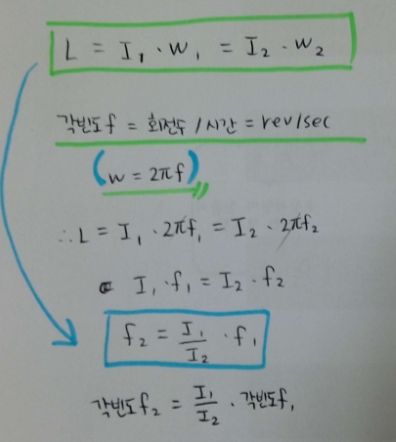 L = I₁ · w₁ = I₂ · w₂
각빈도 f = 회전수 / 시간 = rev/sec
(w = 2πf)
∴ L = I₁ · 2πf₁ = I₂ · 2πf₂
I₁ · f₁ = I₂ · f₂
f₂ = I₁/I₂ · f₁
각빈도 f₂ = I₁/I₂ · 각빈도 f₁